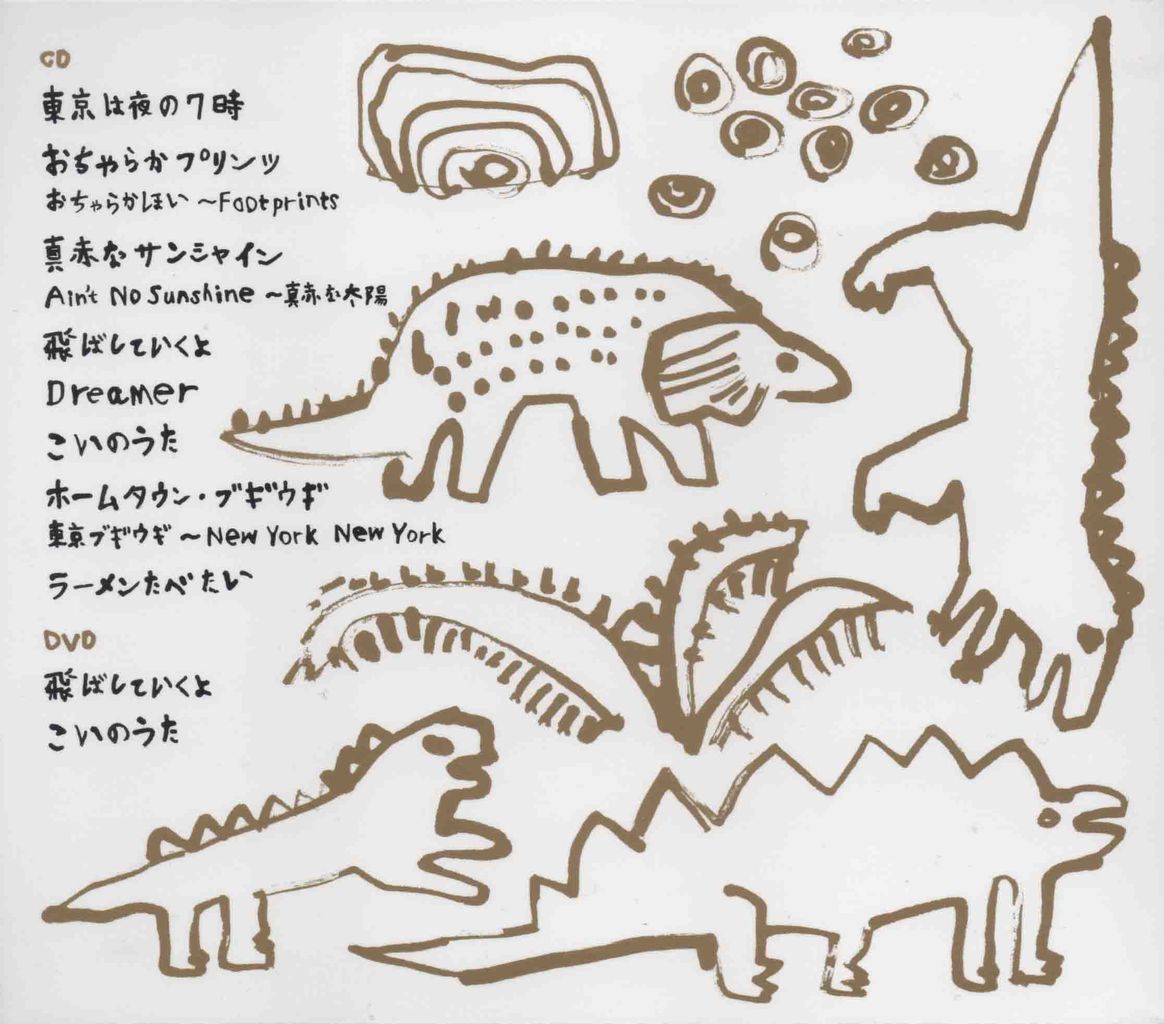 CD
東京は夜の7時
おちゃらかプリンツ
おちゃらかほい 〜Footprints
真赤なサンシャイン
Ain't No Sunshine 〜真赤な太陽
飛ばしていくよ
Dreamer
こいのうた
ホームタウン・ブギウギ
東京ブギウギ 〜New York New York
ラーメンたべたい
DVD
飛ばしていくよ
こいのうた